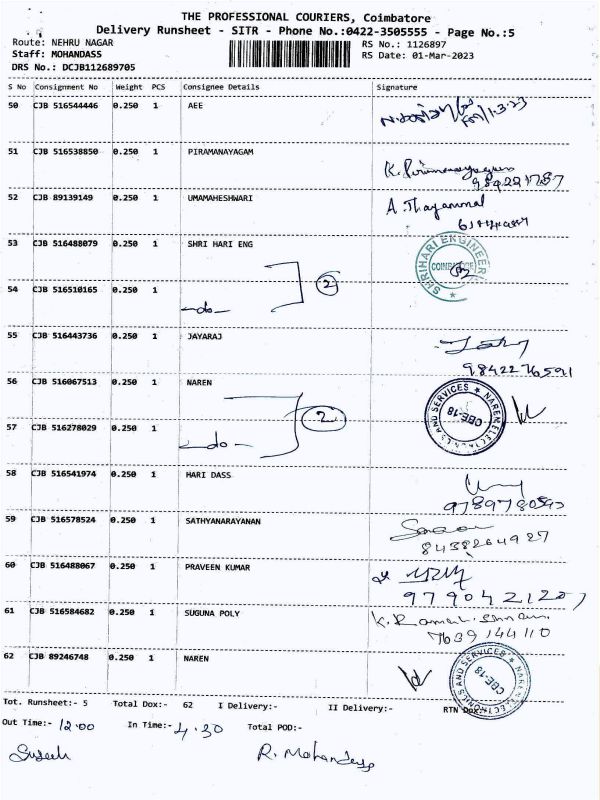 THE PROFESSIONAL COURIERS, Coimbatore
Delivery Runsheet - SITR - Phone No.:0422-3505555 - Page No.:5
Route: NEHRU NAGAR
RS No.: 1126897
Staff: MOHANDASS
RS Date: 01-Mar-2023
DRS No.: DCJB112689705
S No Consignment No Weight PCS Consignee Details Signature
50 CJB 516544446 0.250 1 AEE
1.3.23
51 CJB 516538850 0.250 1 PIRAMANAYAGAM
K. Piramanayagam
52 CJB 89139149 0.250 1 UMAMAHESHWARI
A. Thayammal
53 CJB 516488079 0.250 1 SHRI HARI ENG
SHRIHARI ENGINEER
2
54 CJB 516510165 0.250 1
-do-
55 CJB 516443736 0.250 1 JAYARAJ
9842276591
56 CJB 516067513 0.250 1 NAREN
NAREN ELECTRONICS AND SERVICES
CBE-18
2
57 CJB 516278029 0.250 1
-do-
58 CJB 516541974 0.250 1 HARI DASS
59 CJB 516578524 0.250 1 SATHYANARAYANAN
8438264927
60 CJB 516488067 0.250 1 PRAVEEN KUMAR
61 CJB 516584682 0.250 1 SUGUNA POLY
7639144110
62 CJB 89246748 0.250 1 NAREN
NAREN ELECTRONICS AND SERVICES
CBE-18
Tot. Runsheet:- 5 Total Dox:- 62 I Delivery:- II Delivery:- RTN Dox:-
Out Time:- 12.00 In Time:- 4.30 Total POD:-
Suresh R. Mohandass